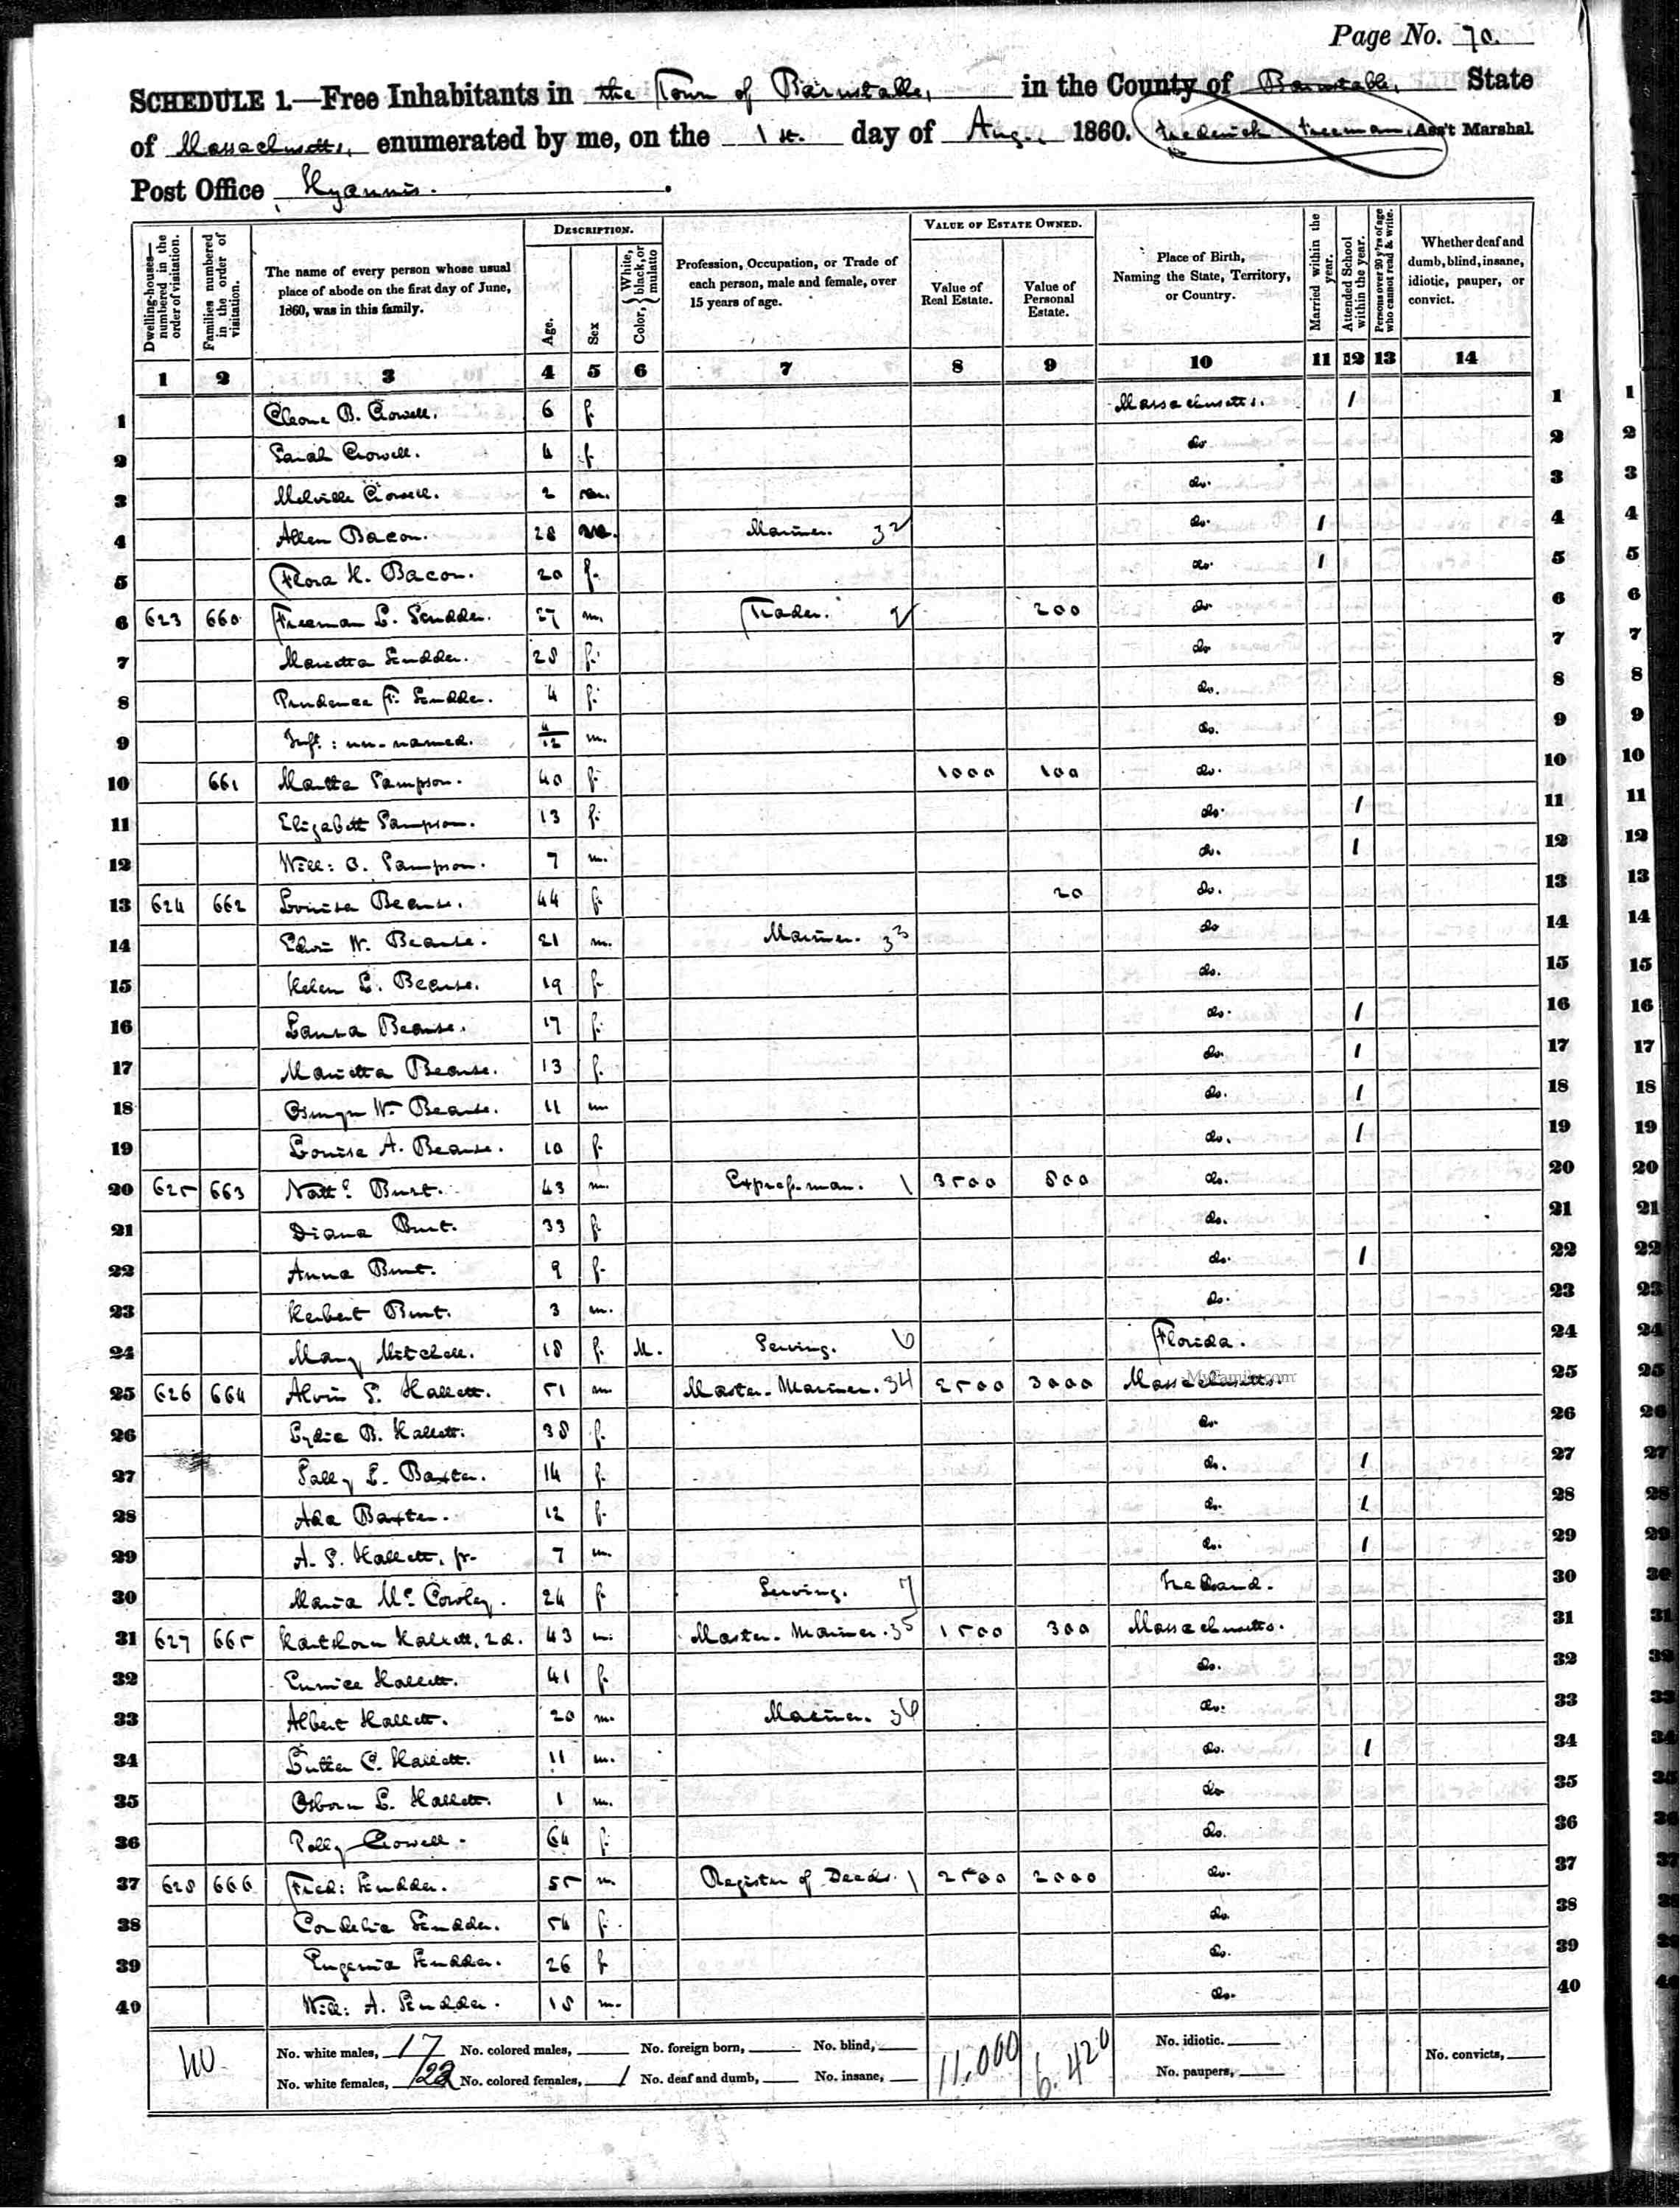 Page No. 70.
SCHEDULE 1.—Free Inhabitants in the Town of Barnstable, in the County of Barnstable, State
of Massachusetts, enumerated by me, on the 1st. day of Aug., 1860. Frederick Freeman, Ass't Marshal
Post Office Hyannis.
Dwelling-houses—numbered in the order of visitation.
Families numbered in the order of visitation.
The name of every person whose usual place of abode on the first day of June, 1860, was in this family.
DESCRIPTION.
Age.
Sex
Color, { White, black, or mulatto
Profession, Occupation, or Trade of each person, male and female, over 15 years of age.
VALUE OF ESTATE OWNED.
Value of Real Estate.
Value of Personal Estate.
Place of Birth, Naming the State, Territory, or Country.
Married within the year.
Attended School within the year.
Persons over 20 y'rs of age who cannot read & write.
Whether deaf and dumb, blind, insane, idiotic, pauper, or convict.
1 2 3 4 5 6 7 8 9 10 11 12 13 14
1 Cleone B. Crowell. 6 f. Massachusetts. 1 1
2 Sarah Crowell. 4 f. do 2
3 Melville Crowell. 2 m. do. 3
4 Allen Bacon. 28 m. Mariner. 32 do. 1 4
5 Flora H. Bacon. 20 f. do. 1 5
6 623 660 Freeman L. Scudder. 27 m. Trader. 2 200 do 6
7 Marietta Scudder. 28 f. do 7
8 Prudence F. Scudder. 4 f. do. 8
9 Inft: un-named. 4/12 m. do. 9
10 661 Martha Sampson. 40 f. 1000 100 do. 10
11 Elizabeth Sampson. 13 f. do. 1 11
12 Will: O. Sampson. 7 m. do. 1 12
13 624 662 Louisa Bearse. 44 f. 20 do. 13
14 Edwin W. Bearse. 21 m. Mariner. 33 do 14
15 Helen L. Bearse. 19 f. do. 15
16 Laura Bearse. 17 f. do. 1 16
17 Marietta Bearse. 13 f. do. 1 17
18 Osmyn W. Bearse. 11 m do. 1 18
19 Louise A. Bearse. 10 f. do. 1 19
20 625 663 Nath<sup>l</sup> Burt. 43 m. Express-man. 1 3500 800 do. 20
21 Diana Burt. 33 f. do. 21
22 Anna Burt. 9 f. do. 1 22
23 Herbert Burt. 3 m. do. 23
24 Mary Mitchell. 18 f. M. Serving. 6 Florida. 24
25 626 664 Alvin S. Hallett. 51 m Master-Mariner. 34 2500 3000 Massachusetts. MyFamily.com 25
26 Lydia B. Hallett. 38 f. do 26
27 Sally L. Baxter. 14 f. do. 1 27
28 Ada Baxter. 12 f. do. 1 28
29 A. S. Hallett, jr. 7 m. do. 1 29
30 Maria Mc Cowley. 24 f Serving. 7 Ireland. 30
31 627 665 Hartshorn Hallett, 2d. 43 m. Master-Mariner. 35 1500 300 Massachusetts. 31
32 Eunice Hallett. 41 f. do. 32
33 Albert Hallett. 20 m. Mariner. 36 do. 33
34 Luther C. Hallett. 11 m. do. 1 34
35 Osborn L. Hallett. 1 m. do 35
36 Polly Crowell. 64 f. do. 36
37 628 666 Fred: Scudder. 55 m Register of Deeds. 1 2500 2000 do. 37
38 Cordelia Scudder. 54 f. do. 38
39 Eugenia Scudder. 26 f do. 39
40 Will: A. Scudder. 18 m. do. 40
40 No. white males, 17 No. colored males, No. foreign born, No. blind, 11,000 6.420 No. idiotic.
No. white females, 22 No. colored females, 1 No. deaf and dumb, No. insane, No. paupers, No. convicts,